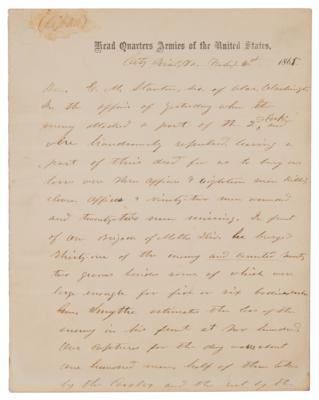 (Cipher)
Head Quarters Armies of the United States,
City Point, Va. 1865
Hon. E. M. Stanton, Sec. of War, Washington
In the affair of yesterday when the
enemy attacked a part of the 2d Corps and
were handsomely repulsed leaving a
part of their dead for us to bury our
loss was three officers & eighteen men killed
eleven officers & ninety-two men wounded
and twenty-two men missing. In front
of one Brigade of Motts Div. he buried
thirty-one of the enemy and counted twenty
two graves besides some of which were
large enough for five or six bodies each
Gen. Smythe estimates the loss of the
enemy in his front at two hundred
Our captures for the day were about
one hundred men, half of them taken
by the Cavalry and the rest by the